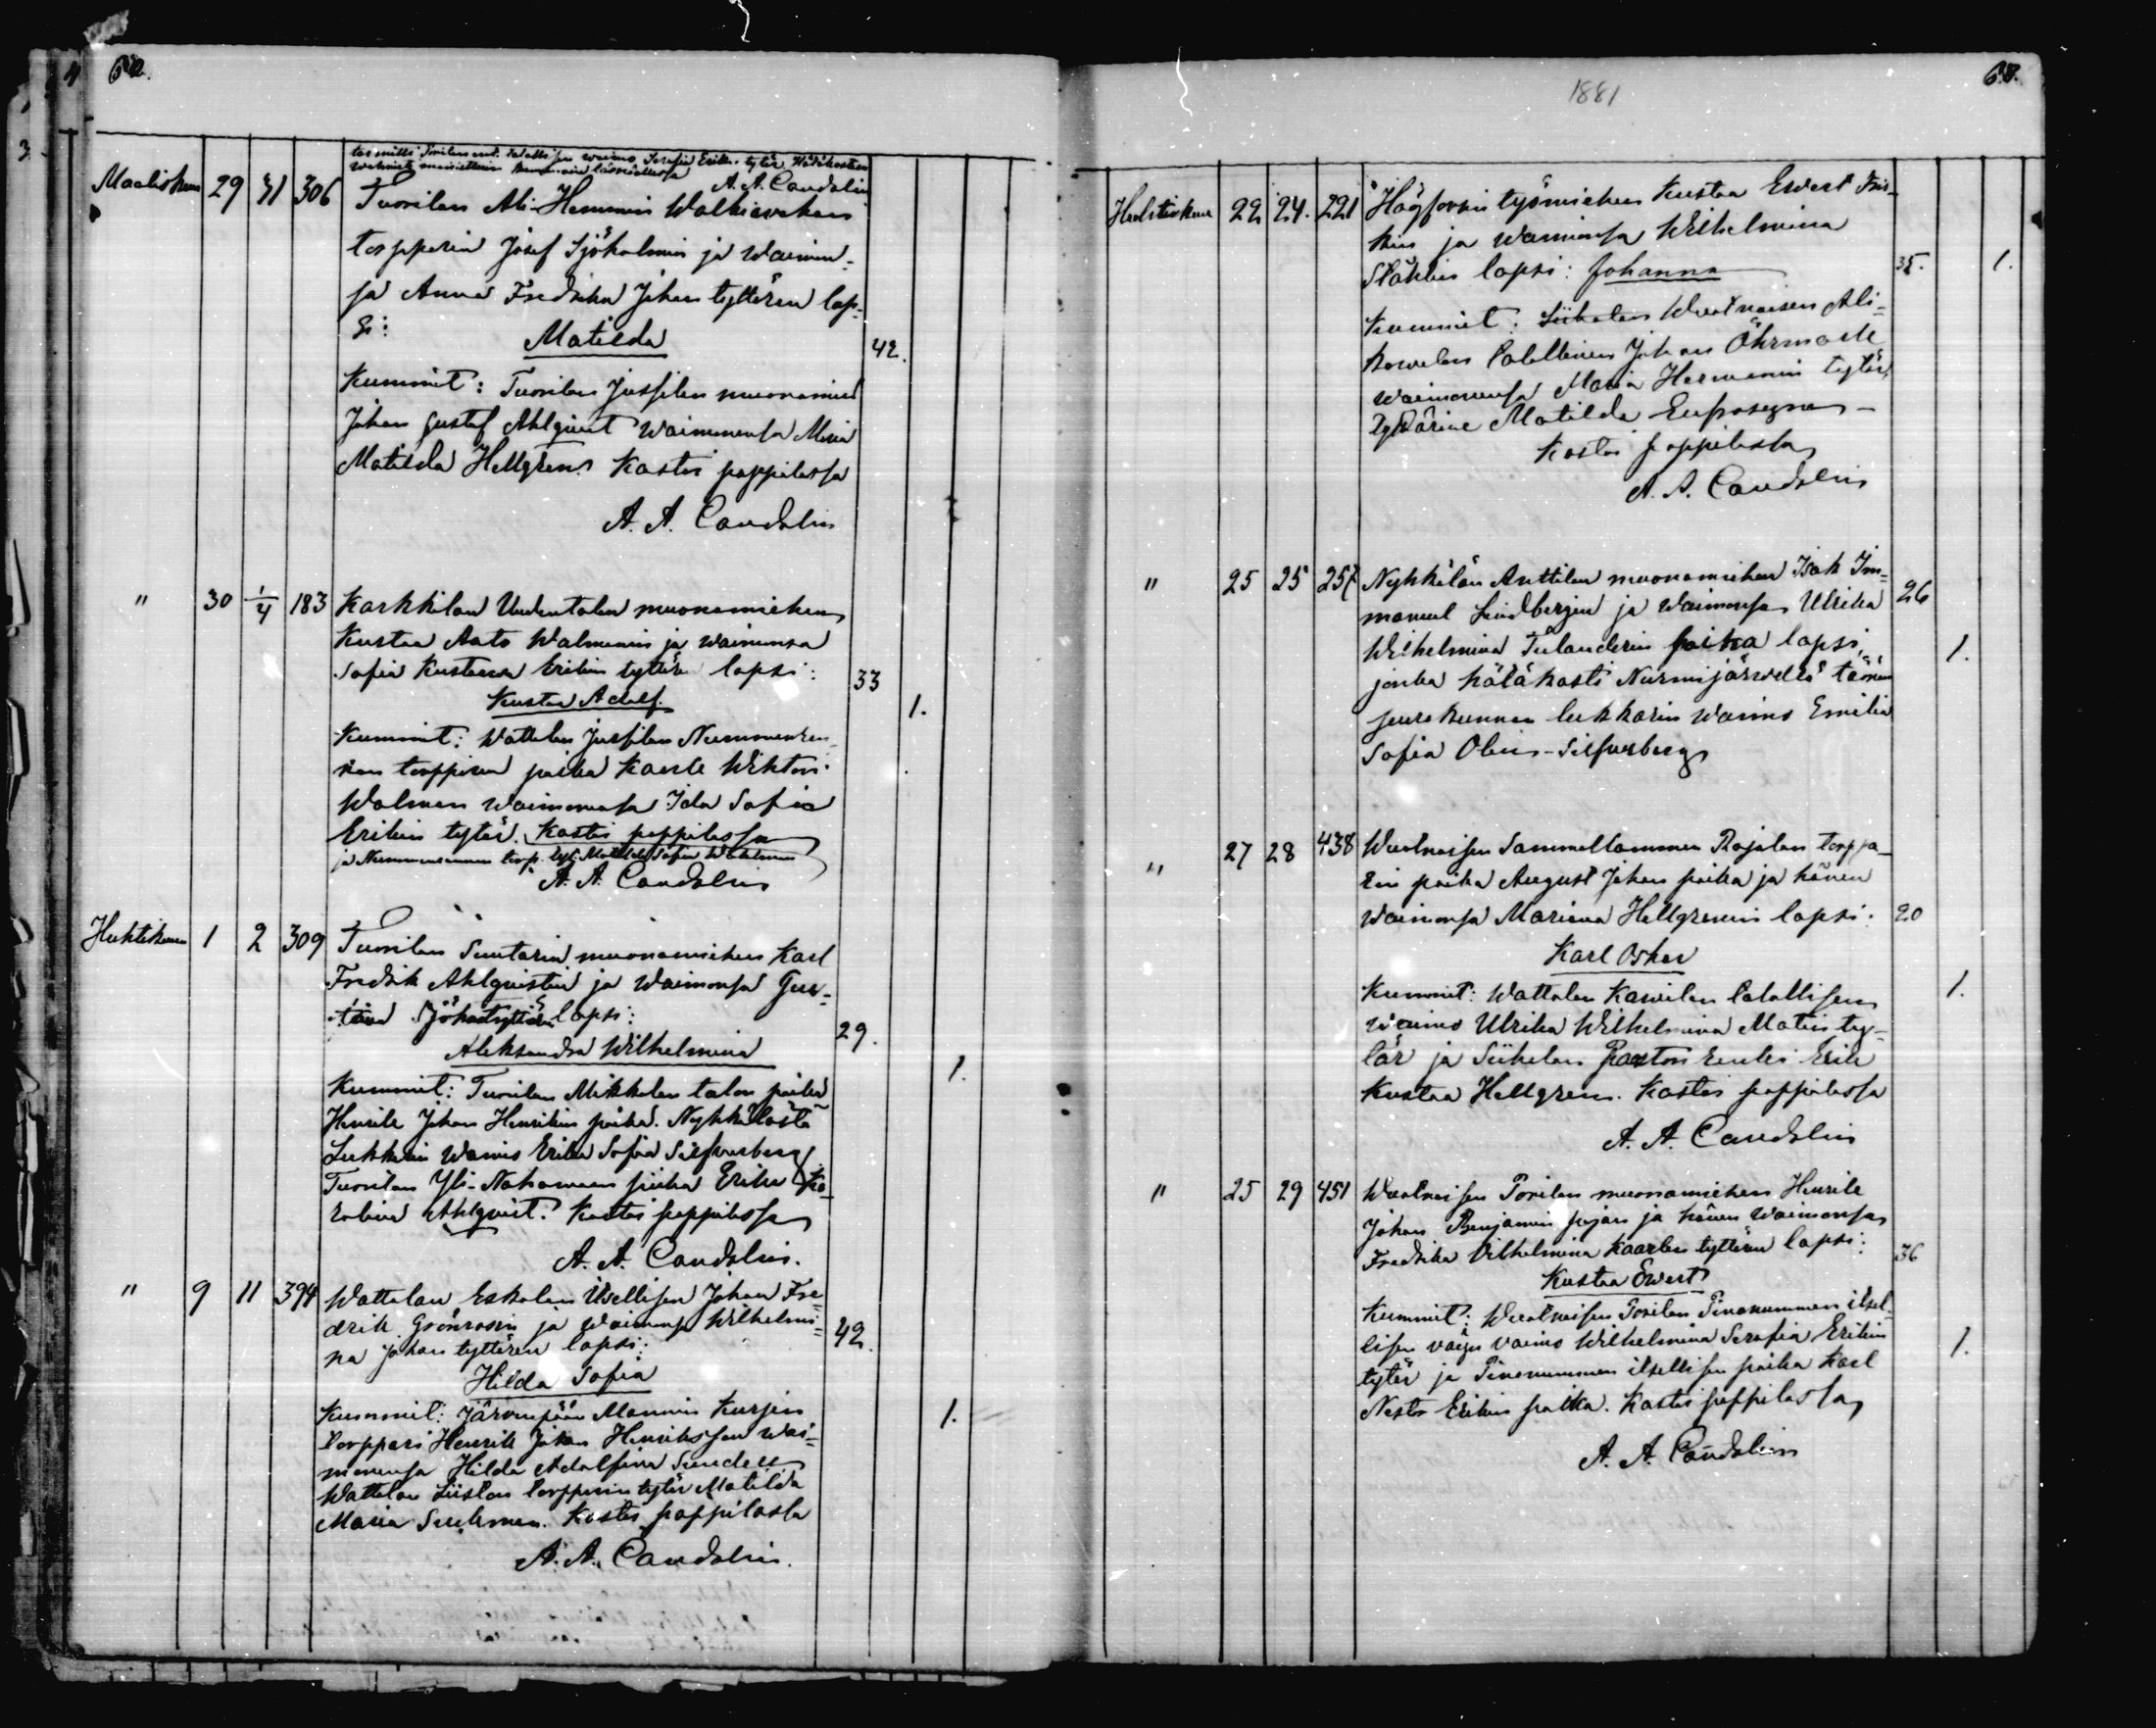 62.
A. A. Candolin
Maaliskuu 29 31 306 Tuorilan Ali-Hemmin
torpparin Josef Sjöholmin ja waimon-
sa Anna Fredrika Johan tyttären lap-
si:
Matilda
42.
Kummit: Tuorilan Jussilan muonamies
Johan Gustaf Ahlqvist waimonensa Maria
Matilda Hellgren. Kastoi pappilassa
A. A. Candolin
" 30 1/4 183 Karkkilan Uudentalon muonamiehen
Kustaa Aato Walmenin ja waimonsa
Sofia Kustaawa Erikin tyttären lapsi:
33
Kustaa Adolf.
1.
Kummit: Wattolan Jussilan
torpparin poika Kaarle Wiktori
Walmen waimonensa Ida Sofia
Erikin tytär. Kastoi pappilassa
ja Nummensuun torp. tyt. Matilda Sofia
A. A. Candolin
Huhtikuu 1 2 309 Tuorilan Suutarin muonamiehen Karl
Fredrik Ahlqvistin ja waimonsa Gus-
lapsi:
29.
Aleksandra Wilhelmina
1.
Kummit: Tuorilan Mikkolan talon poika
Henrik Johan Henrikin poika. Nyhkälästä
Lukkarin waimo Erika Sofia Silfverberg
Tuorilan Yli-Nahannan piika Erika Ka-
rolina Ahlqvist. Kastoi pappilassa
A. A. Candolin.
" 9 11 394 Wattolan Eskolan itsellisen Johan Fre-
drik Grönroosin ja waimonsa Wilhelmi-
na Johan tyttären lapsi:
42.
Hilda Sofia
Kummit: Järvenpään Mannin Kurjen
torppari Henrik Johan Henriksson wai-
monensa Hilda Adolfina Sundell
Wattolan Liistan torpparin tytär Matilda
Maria. Kastoi pappilassa
1.
A. A. Candolin.
1881
63.
Huhtikuu 22 24. 221 Högforsin työmiehen Kustaa Ewert Fris-
kin ja waimonsa Wilhelmina
Ståhlin lapsi: Johanna
35.
1.
Kummit: Siikalan Wuotnaisen Ali-
kowolan Johan Öhrmark
waimonensa Maria Hermannin tytär,
Matilda
Kastoi pappilassa
A. A. Candolin
" 25 25 257 Nyhkälän Anttilan muonamiehen Isak Im-
manuel Lindbergin ja waimonsa Ulrika
26
Wilhelmina Tulanderin poika lapsi,
1.
jonka hätäkasti Nurmijärwellä tämän
seurakunnan lukkarin waimo Emilia
Sofia Olin-Silfverberg
" 27 28 438 Wuotnaisen Sammallammen Rajalan torppa-
rin poika August Johan poika ja hänen
waimonsa Mariana Hellgrenin lapsi:
20
Karl Oskar
1.
Kummit: Wattolan
waimo Ulrika Wilhelmina Matin ty-
tär ja Siikalan Erik
Kustaa Hellgren. Kastoi pappilassa
A. A. Candolin
" 25 29 451 Wuotnaisen Porilan muonamiehen Henrik
Johan Benjamin pojan ja hänen waimonsa
Fredrika Vilhelmina Kaarlen tyttären lapsi:
36
Kustaa Ewert
Kummit: Wuotnaisen Porilan Pinonummen itsel-
lisen waimo Wilhelmina Serafia Erikin
1.
tytär ja Pinonummen itsellisen poika Karl
Nestor Erikin poika. Kastoi pappilassa
A. A. Candolin